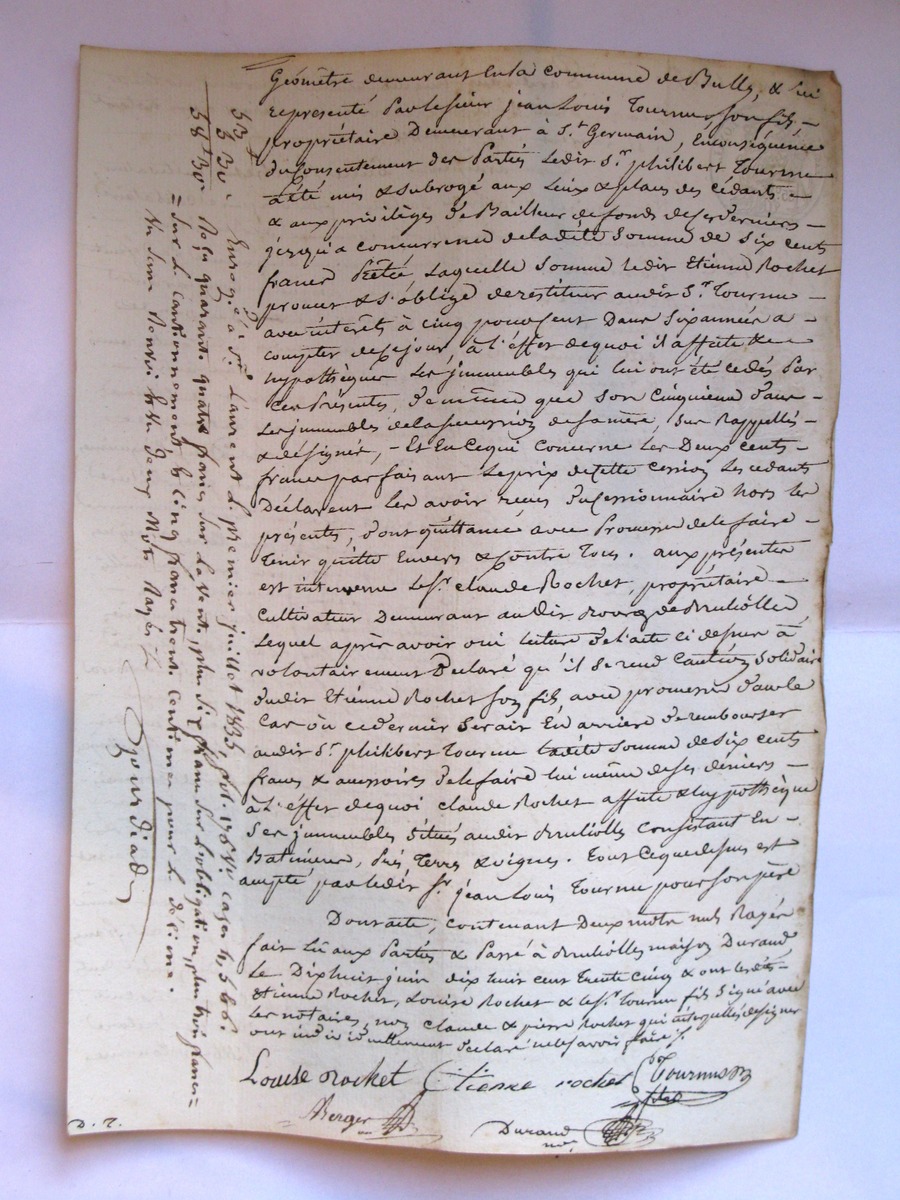 Géomètre demeurant en la commune de Bully, & lui
représenté par le sieur jean Louis Tournu son fils –
propriétaire Demeurant à S.t Germain, En conséquence
du Consentement des Parties ledit S.r philibert Tournu
a été mis & subrogé aux Lieux & places des cédants –
& aux privilèges de Bailleur de fonds de ces derniers –
jusqu'a concurrence de la dite Somme de Six cents
francs Prêtée Laquelle Somme ledit Etienne Rochet
promet & s'oblige de restituer audit S.r Tournu –
avec intérêts à cinq pour cent Dans Six années a –
compter de ce jour à l'effet de quoi il affecte &
hypothèque Les jmmeubles qui lui ont été cédés Par
ces Présentes, de même que son Cinquième dans –
Les jmmeubles de la succession de sa mère, Sus Rappellés –
& désignés, – Et En Ce qui concerne les Deux cents –
francs parfaisant Le prix de cette cession Les cédants
Déclarent Les avoir reçus du cessionnaire hors les
présentes, dont quittance avec Promesse de le faire –
Tenir quitte Envers & Contre Tous. aux présentes
est intervenu le S.r claude Rochet, propriétaire –
Cultivateur Demeurant audit Bourg de Brulioles
Lequel après avoir oui lecture de l'acte ci dessus à
volontairement Déclaré qu'il Se rend Caution Solidaire
dudit Etienne Rochet son fils avec promesse dans le
Cas où ce dernier Serait En arriere de rembourser
audit S.r philibert Tournu ladite Somme de Six cents
francs & accessoires de le faire lui même de ses deniers –
à l'effet de quoi claude Rochet affecte & hypothèque
Ses jmmeubles Situés audit Brulioles Consistant En –
Batiments, Prés Terres & vignes. Tout Ce que dessus est
accepté par ledit S.r jean Louis Tournu pour son père
Dont acte, contenant Deux mots nuls Rayés
fait Lû aux Parties & Passé à Brulioles maison Durand
Le Dix huit juin dix huit cent Trente Cinq & ont lesdits –
Etienne Rochet, Louise Rochet & le S.r Tournu fils Signé avec
Les notaires, non claude & pierre Rochet qui interpellés de signer
ont individuellement déclaré ne le savoir faire
Louise rochet Etienne rochet Tournu
fils
Berger
Durand
no.re
D. T.
Enreg.é à S.t Laurent le premier juillet 1835, fol. 176 V.o cases 4, 5 & 6.
Reçu quarante quatre francs sur la vente, plus six francs sur l'obligation, plus trois francs =
= Sur le Cautionnement & Cinq francs trente centimes pour le dixième.
53 f
5 30 c
58 f 30 c